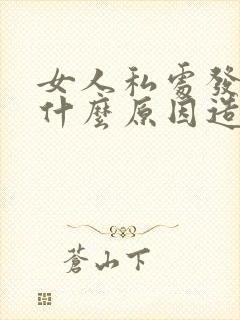 女人私處發
什麼原因造
蒼山下